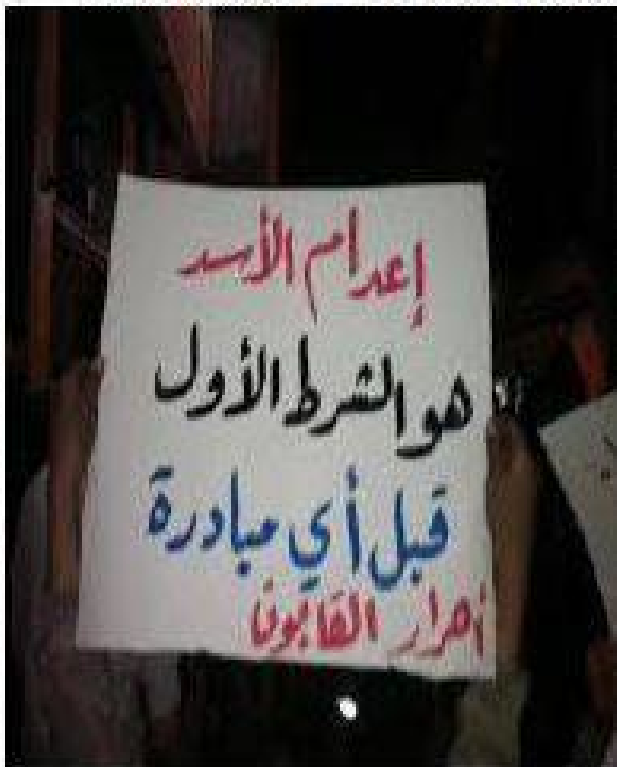 إعدام الأسد
هو الشرط الأول
قبل أي مبادرة
أحرار القابون